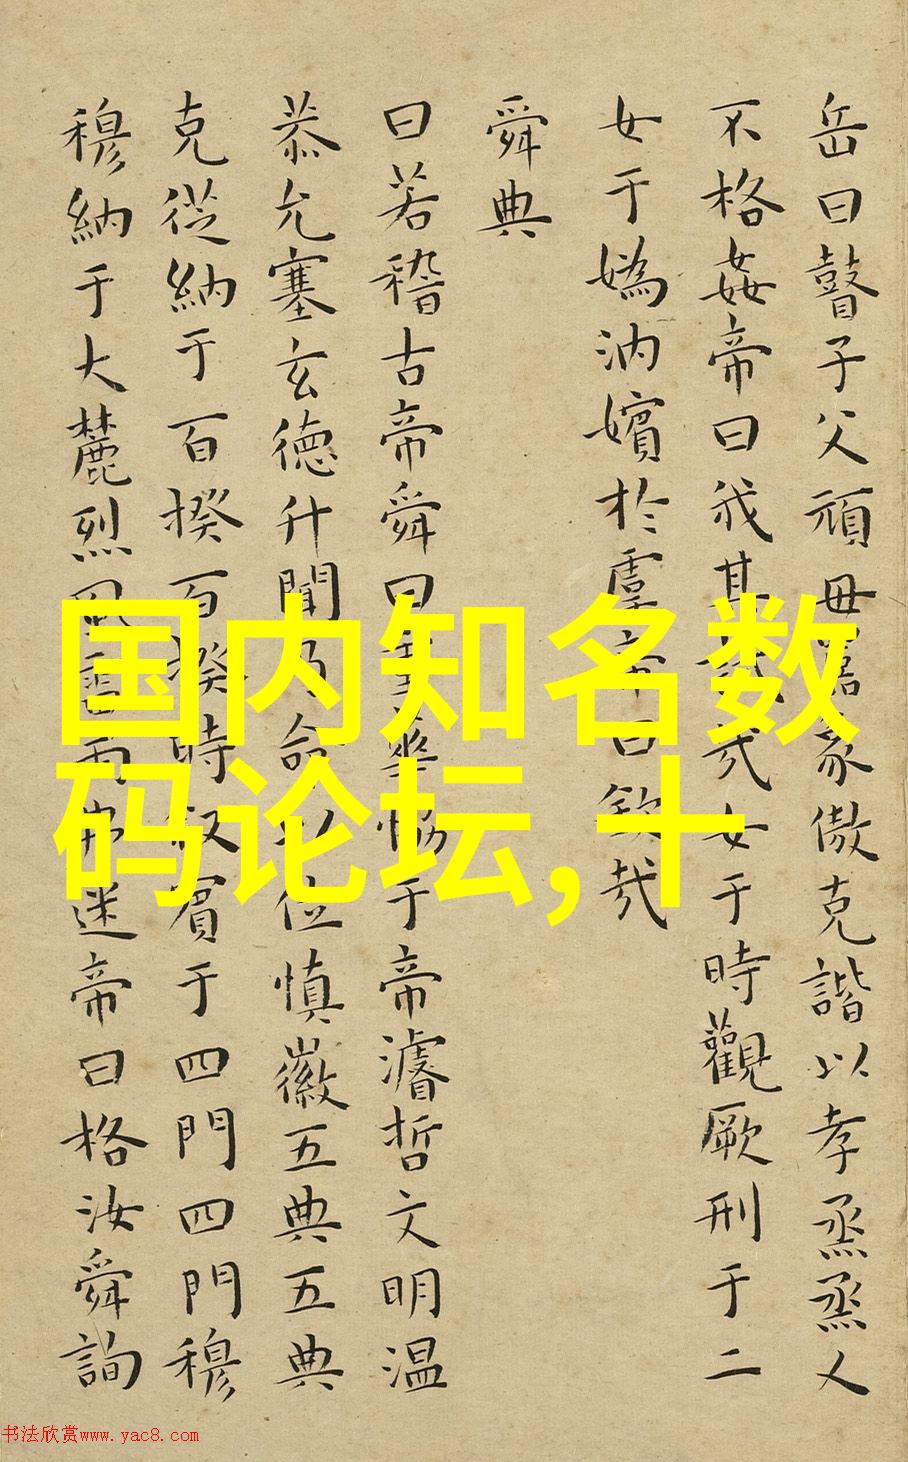 岳曰瞽子父頑毋嚚象傲克諧以孝烝烝乂
不格姦帝曰我其試哉女于時觀厥刑于二
女于媯汭嬪於虞帝曰欽哉
舜典
曰若稽古帝舜曰重華協于帝濬哲文明温
恭允塞玄德升聞乃命以位慎徽五典五典
克從納于百揆百揆時叙賓于四門四門穆
穆納于大麓烈風雷雨弗迷帝曰格汝舜詢
国内知名数
码论坛,十
书法欣赏www.yac8.com